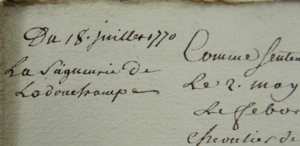 Du 18. juillet 1770
La Sgneurie de
Ladonchamps
Comme Senten
Le 2. may
Le Febv
chevalier de